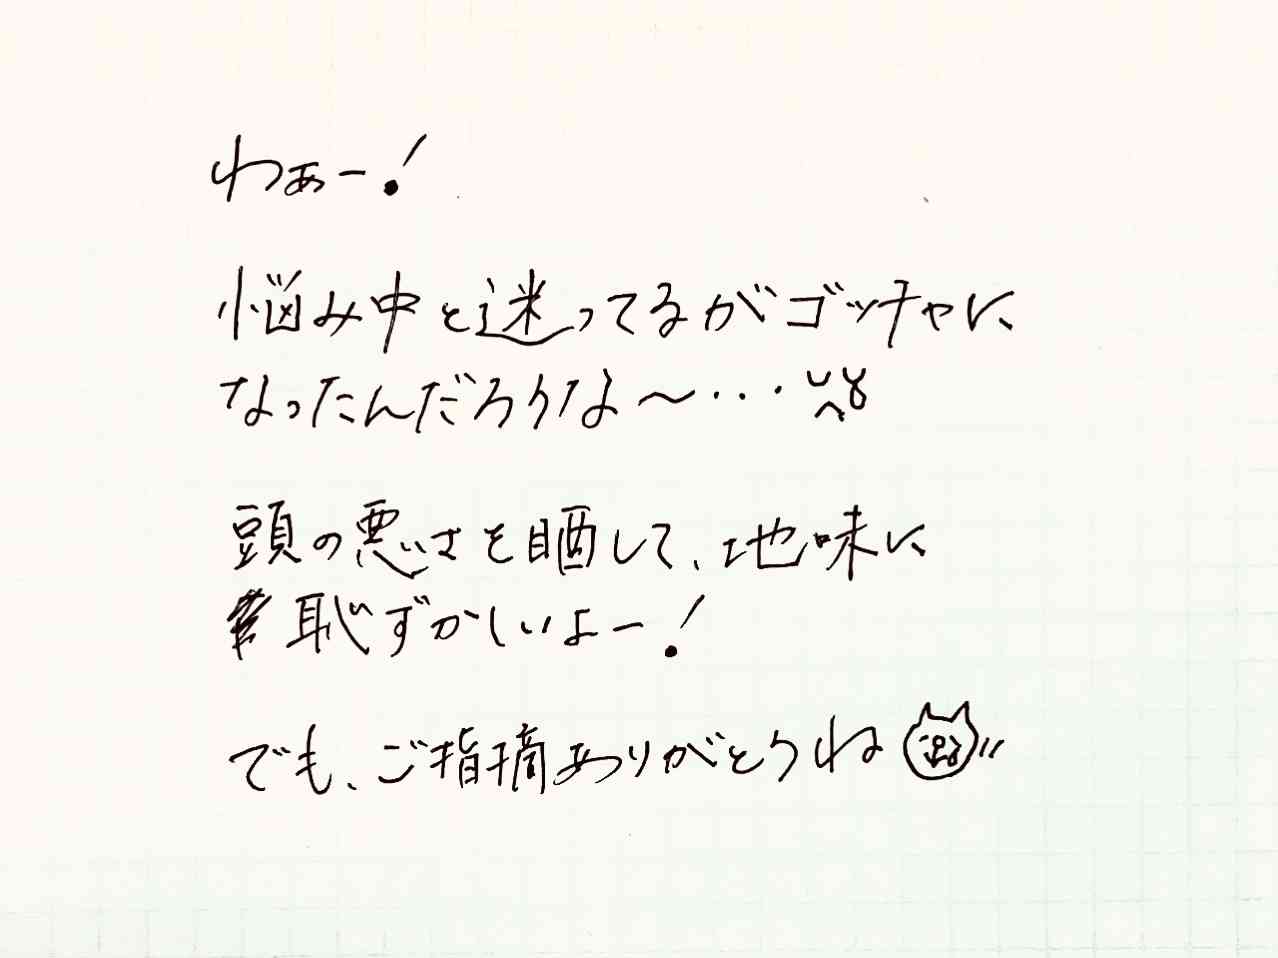 わぁー!
悩み中と迷ってるがゴッチャに
なったんだろうな〜・・・
頭の悪さを晒して、地味に
恥ずかしいよー!
でも、ご指摘ありがとうね